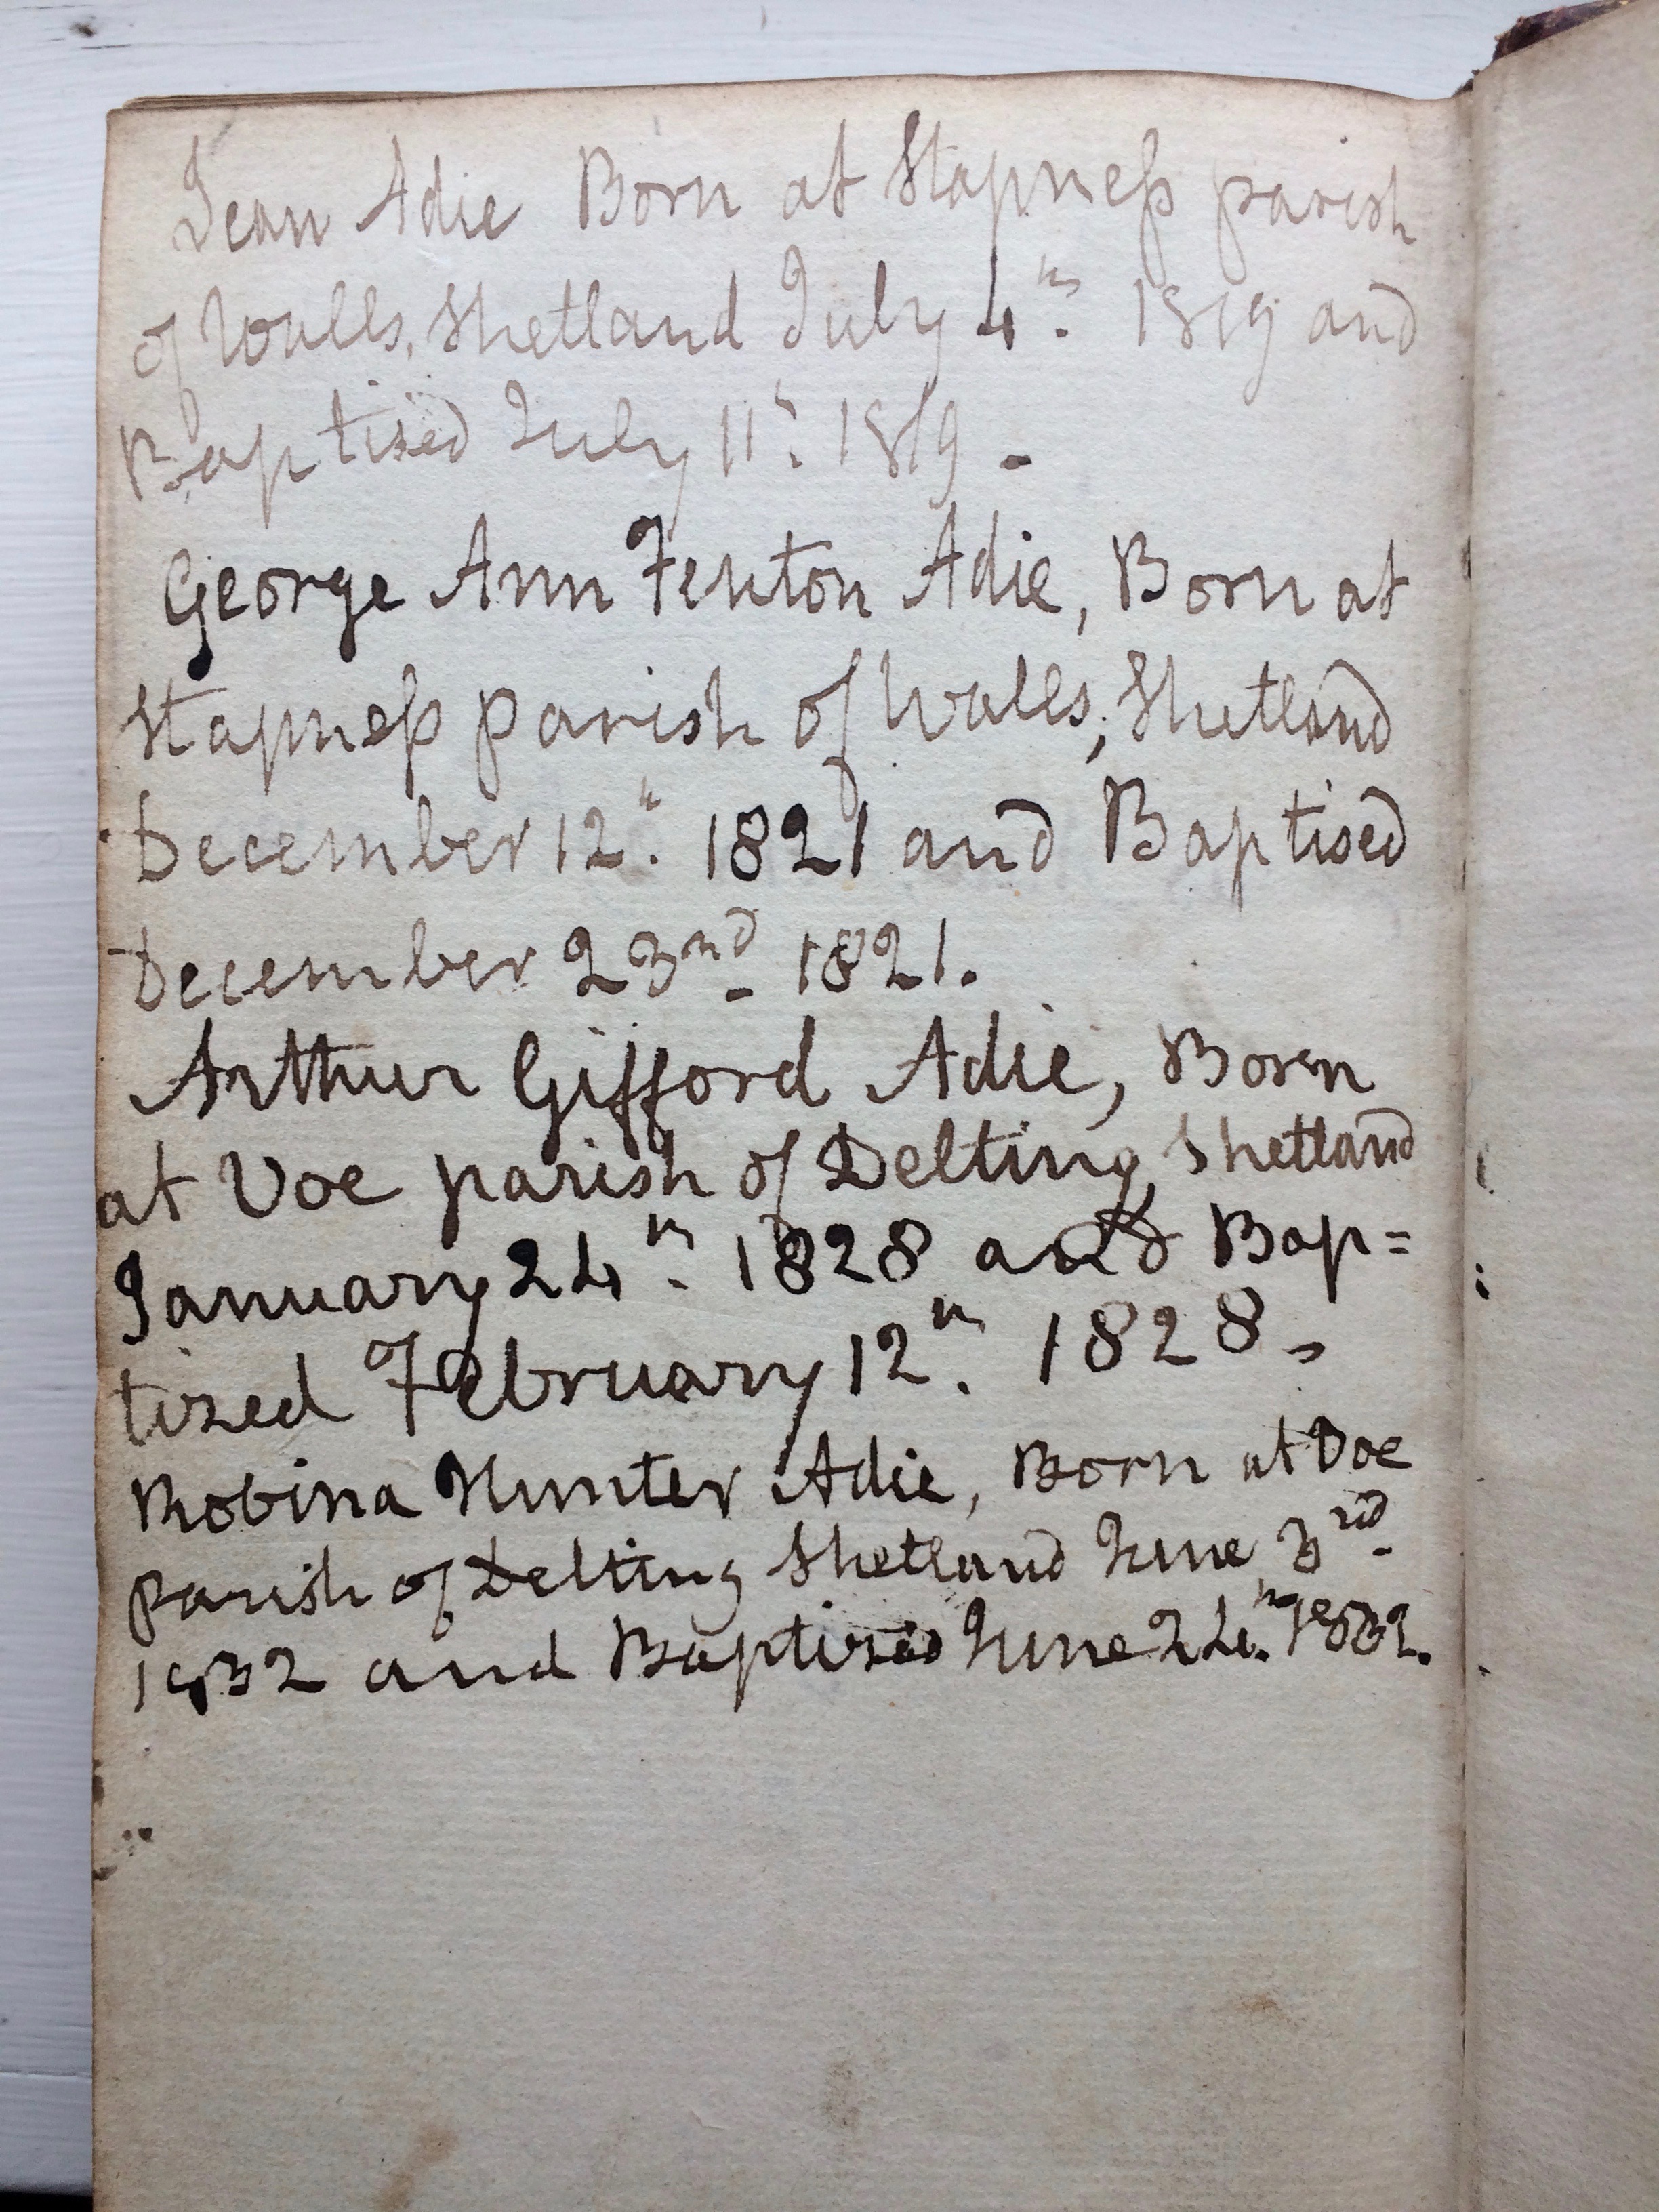 Jean Adie Born at Stapneſs parish
of Walls, Shetland July 4th. 1819 and
Baptised July 11th. 1819 -
George Ann Fenton Adie, Born at
Stapneſs parish of Walls, Shetland
December 12th. 1821 and Baptised
December 23nd. 1821.
Arthur Gifford Adie, Born
at Voe parish of Delting, Shetland
January 24th. 1828 and Bap=
tized February 12th. 1828.
Robina Hunter Adie, Born at Voe
parish of Delting Shetland June 3rd.
1832 and Baptised June 24th. 1832.